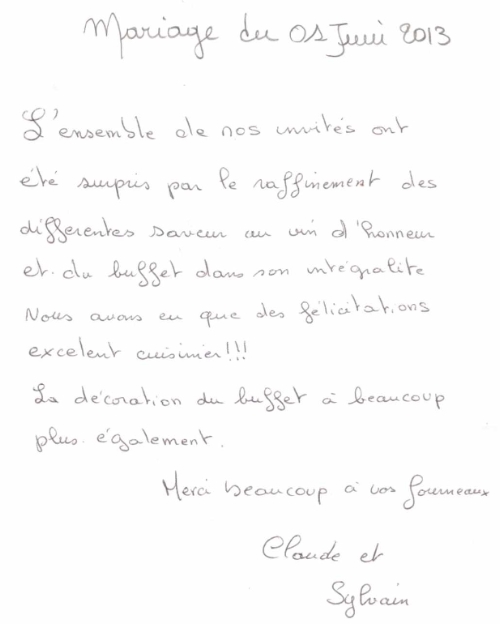 Mariage du 01 Juin 2013
L'ensemble de nos invités ont
été surpris par le raffinement des
différentes saveur au vin d'honneur
et du buffet dans son intégralité
Nous avons eu que des félicitations
excelent cuisinier!!!
La décoration du buffet à beaucoup
plus également.
Merci beaucoup à vos fourneaux
Claude et
Sylvain